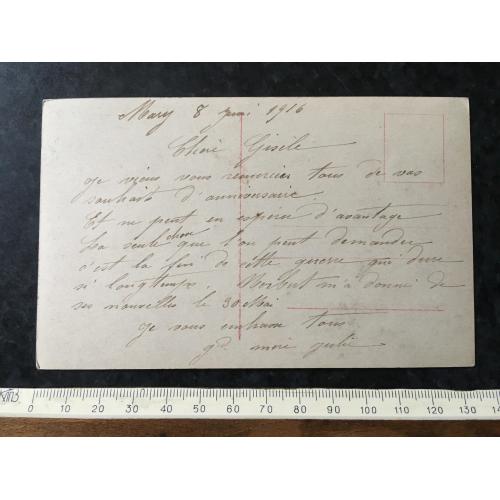 Mary 8 juin 1916
Chere Gisèle
je viens vous remercier tous de vos
souhaits d'anniversaire.
Et ne peut en esperer d'avantage
La seule chose que l'on peut demander
c'est la fin de cette guerre qui dure
si longtemps. Norbert m'a donné de
ses nouvelles le 30 Mai
je vous embrasse tous
gd. mere julie
0 10 20 30 40 50 60 70 80 90 100 110 120 130 14